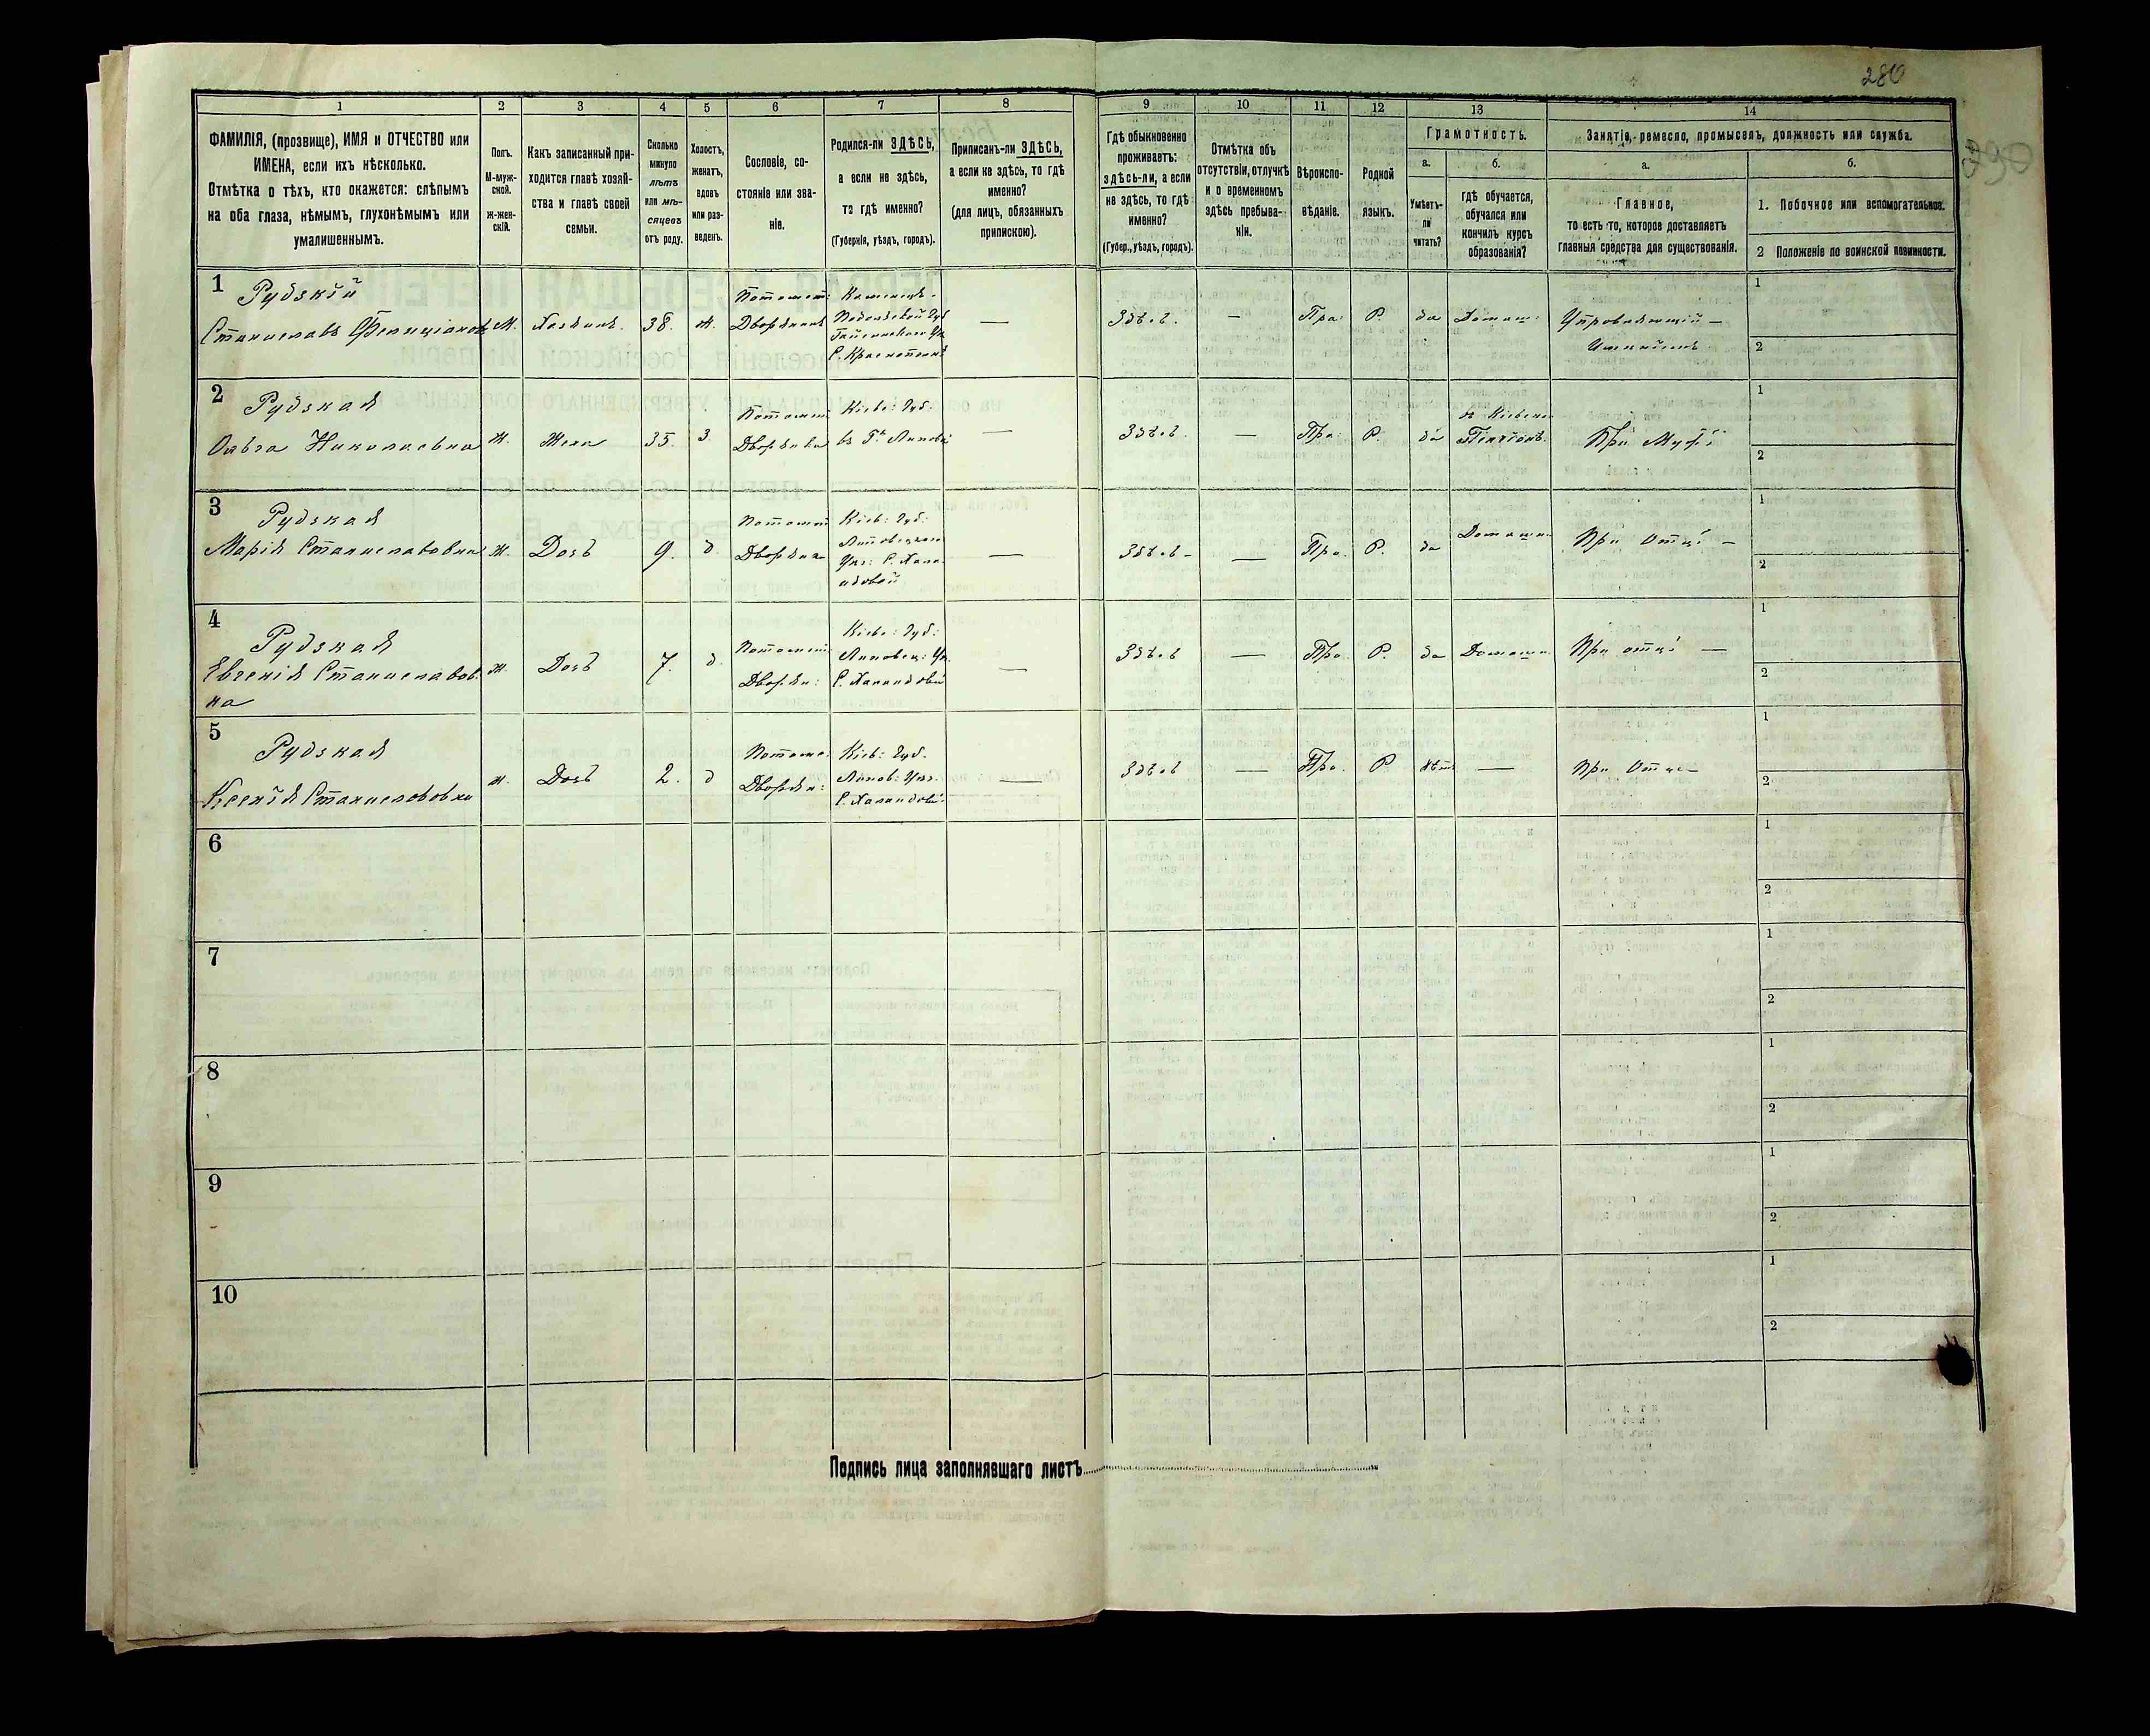 280
390
1
2
3
4
5
6
7
8
9
10
11
12
13
14
ФАМИЛІЯ, (прозвище), ИМЯ и ОТЧЕСТВО или
ИМЕНА, если ихъ нѣсколько.
Отмѣтка о тѣхъ, кто окажется: слѣпымъ
на оба глаза, нѣмымъ, глухонѣмымъ или
умалишеннымъ.
Полъ.
М-муж-
ской.
ж-жен-
скій.
Какъ записанный при-
ходится главѣ хозяй-
ства и главѣ своей
семьи.
Сколько
минуло
лѣтъ
или мѣ-
сяцевъ
отъ роду.
Холостъ,
женатъ,
вдовъ
или раз-
веденъ.
Сословіе, со-
стояніе или зва-
ніе.
Родился-ли ЗДѢСЬ,
а если не здѣсь,
то гдѣ именно?
(Губернія, уѣздъ, городъ).
Приписанъ-ли ЗДѢСЬ,
а если не здѣсь, то гдѣ
именно?
(для лицъ, обязанныхъ
припискою).
Гдѣ обыкновенно
проживаетъ:
здѣсь-ли, а если
не здѣсь, то гдѣ
именно?
(Губер., уѣздъ, городъ).
Отмѣтка объ
отсутствіи, отлучкѣ
и о временномъ
здѣсь пребыва-
ніи.
Вѣроиспо-
вѣданіе.
Родной
языкъ.
Грамотность.
а.
б.
Умѣетъ-
ли
читать?
гдѣ обучается,
обучался или
кончилъ курсъ
образованія?
Занятіе, ремесло, промыселъ, должность или служба.
а.
б.
Главное,
то есть то, которое доставляетъ
главныя средства для существованія.
1. Побочное или вспомогательное.
2 Положеніе по воинской повинности.
1
Рудзкій
Станиславъ Фелиціанов
М.
Хозяинъ.
38.
ж.
Потомст:
Дворянинъ
Подольской Губ
Гайсинскаго Уѣ
—
Здѣсь.
—
Пра:
Р.
да
Домаш:
Управляющій —
1
2
2
Рудзкая
Ольга Николаевна
ж.
Жена
35.
з
Дворянка
Кіевс: Губ.
—
Здѣсь.
—
Пра:
Р.
да
въ Кіевск
Пансіонѣ.
При Мужѣ
1
2
3
Рудзкая
Марія Станиславовна
ж.
Дочь
9.
д.
Дворянка
Кіев: Губ:
—
Здѣсь -
—
Пра.
Р.
да
Домашн.
При Отцѣ —
1
2
4
Рудзкая
Евгенія Станиславов.
на
ж.
Дочь
7.
д.
Дворян:
Кіевс: Губ:
Липовец: Уѣ
—
Здѣсь
—
Пра.
Р.
да
Домашн.
При отцѣ —
1
2
5
Рудзкая
Ксенія Станиславовна
ж.
Дочь
2.
д
Потомс:
Дворян:
Кіев: Губ.
Липов: Уѣз.
—
Здѣсь
—
Пра.
Р.
нѣтъ
—
При Отцѣ —
1
2
6
1
2
7
1
2
8
1
2
9
1
2
10
1
2
Подпись лица заполнявшаго листъ